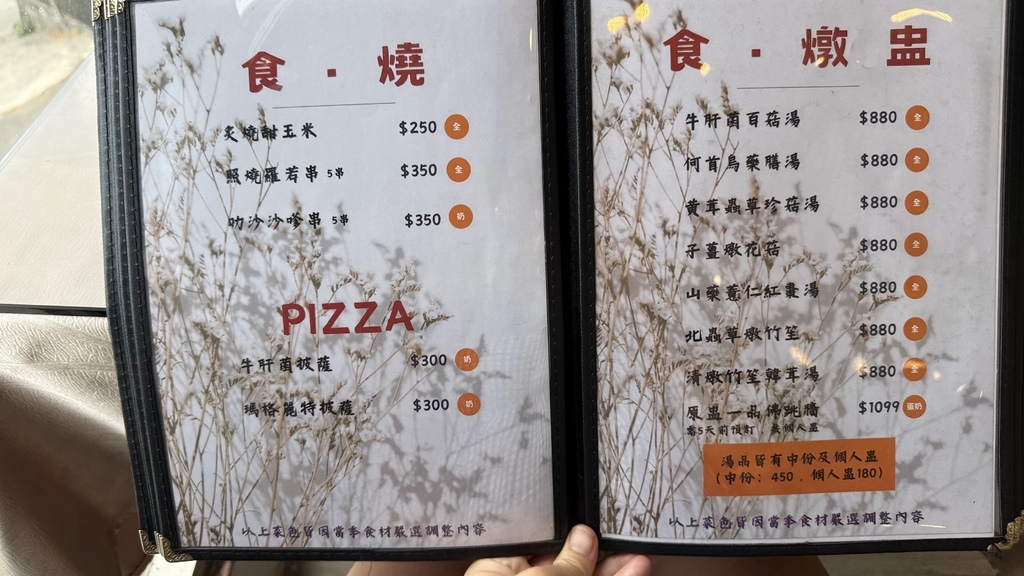 食·燒
炙燒甜玉米 $250 全
照燒羅若串 5串 $350 全
叻沙沙嗲串 5串 $350 奶
PIZZA
牛肝菌披薩 $300 奶
瑪格麗特披薩 $300 奶
以上菜色皆因當季食材嚴選調整內容
食·燉 盅
牛肝菌百菇湯 $880 全
何首烏藥膳湯 $880 全
黃茸蟲草珍菇湯 $880 全
子薑燉花菇 $880 全
山藥薏仁紅棗湯 $880 全
北蟲草燉竹笙 $880 全
清燉竹笙韓茸湯 $880 全
原盅一品佛跳牆 $1099 蛋奶
需5天前預訂 無個人盅
湯品皆有中份及個人盅
(中份: 450 . 個人盅180)
以上菜色皆因當季食材嚴選調整內容